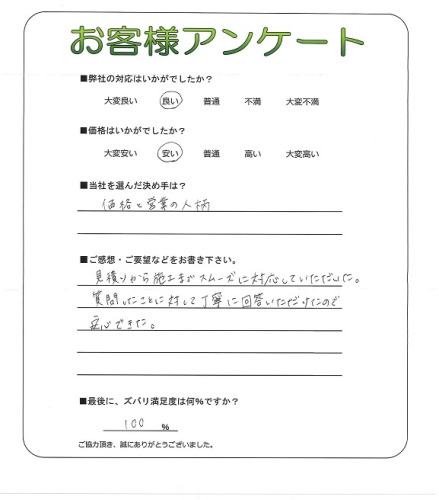 お客様アンケート
■弊社の対応はいかがでしたか？
大変良い 良い 普通 不満 大変不満
■価格はいかがでしたか？
大変安い 安い 普通 高い 大変高い
■当社を選んだ決め手は？
価格と営業の人柄
■ご感想・ご要望などをお書き下さい。
見積りから施工までスムーズに対応していただいた。
質問したことに対して丁寧に回答いただけたので
安心できた。
■最後に、ズバリ満足度は何%ですか？
100 %
ご協力頂き、誠にありがとうございました。